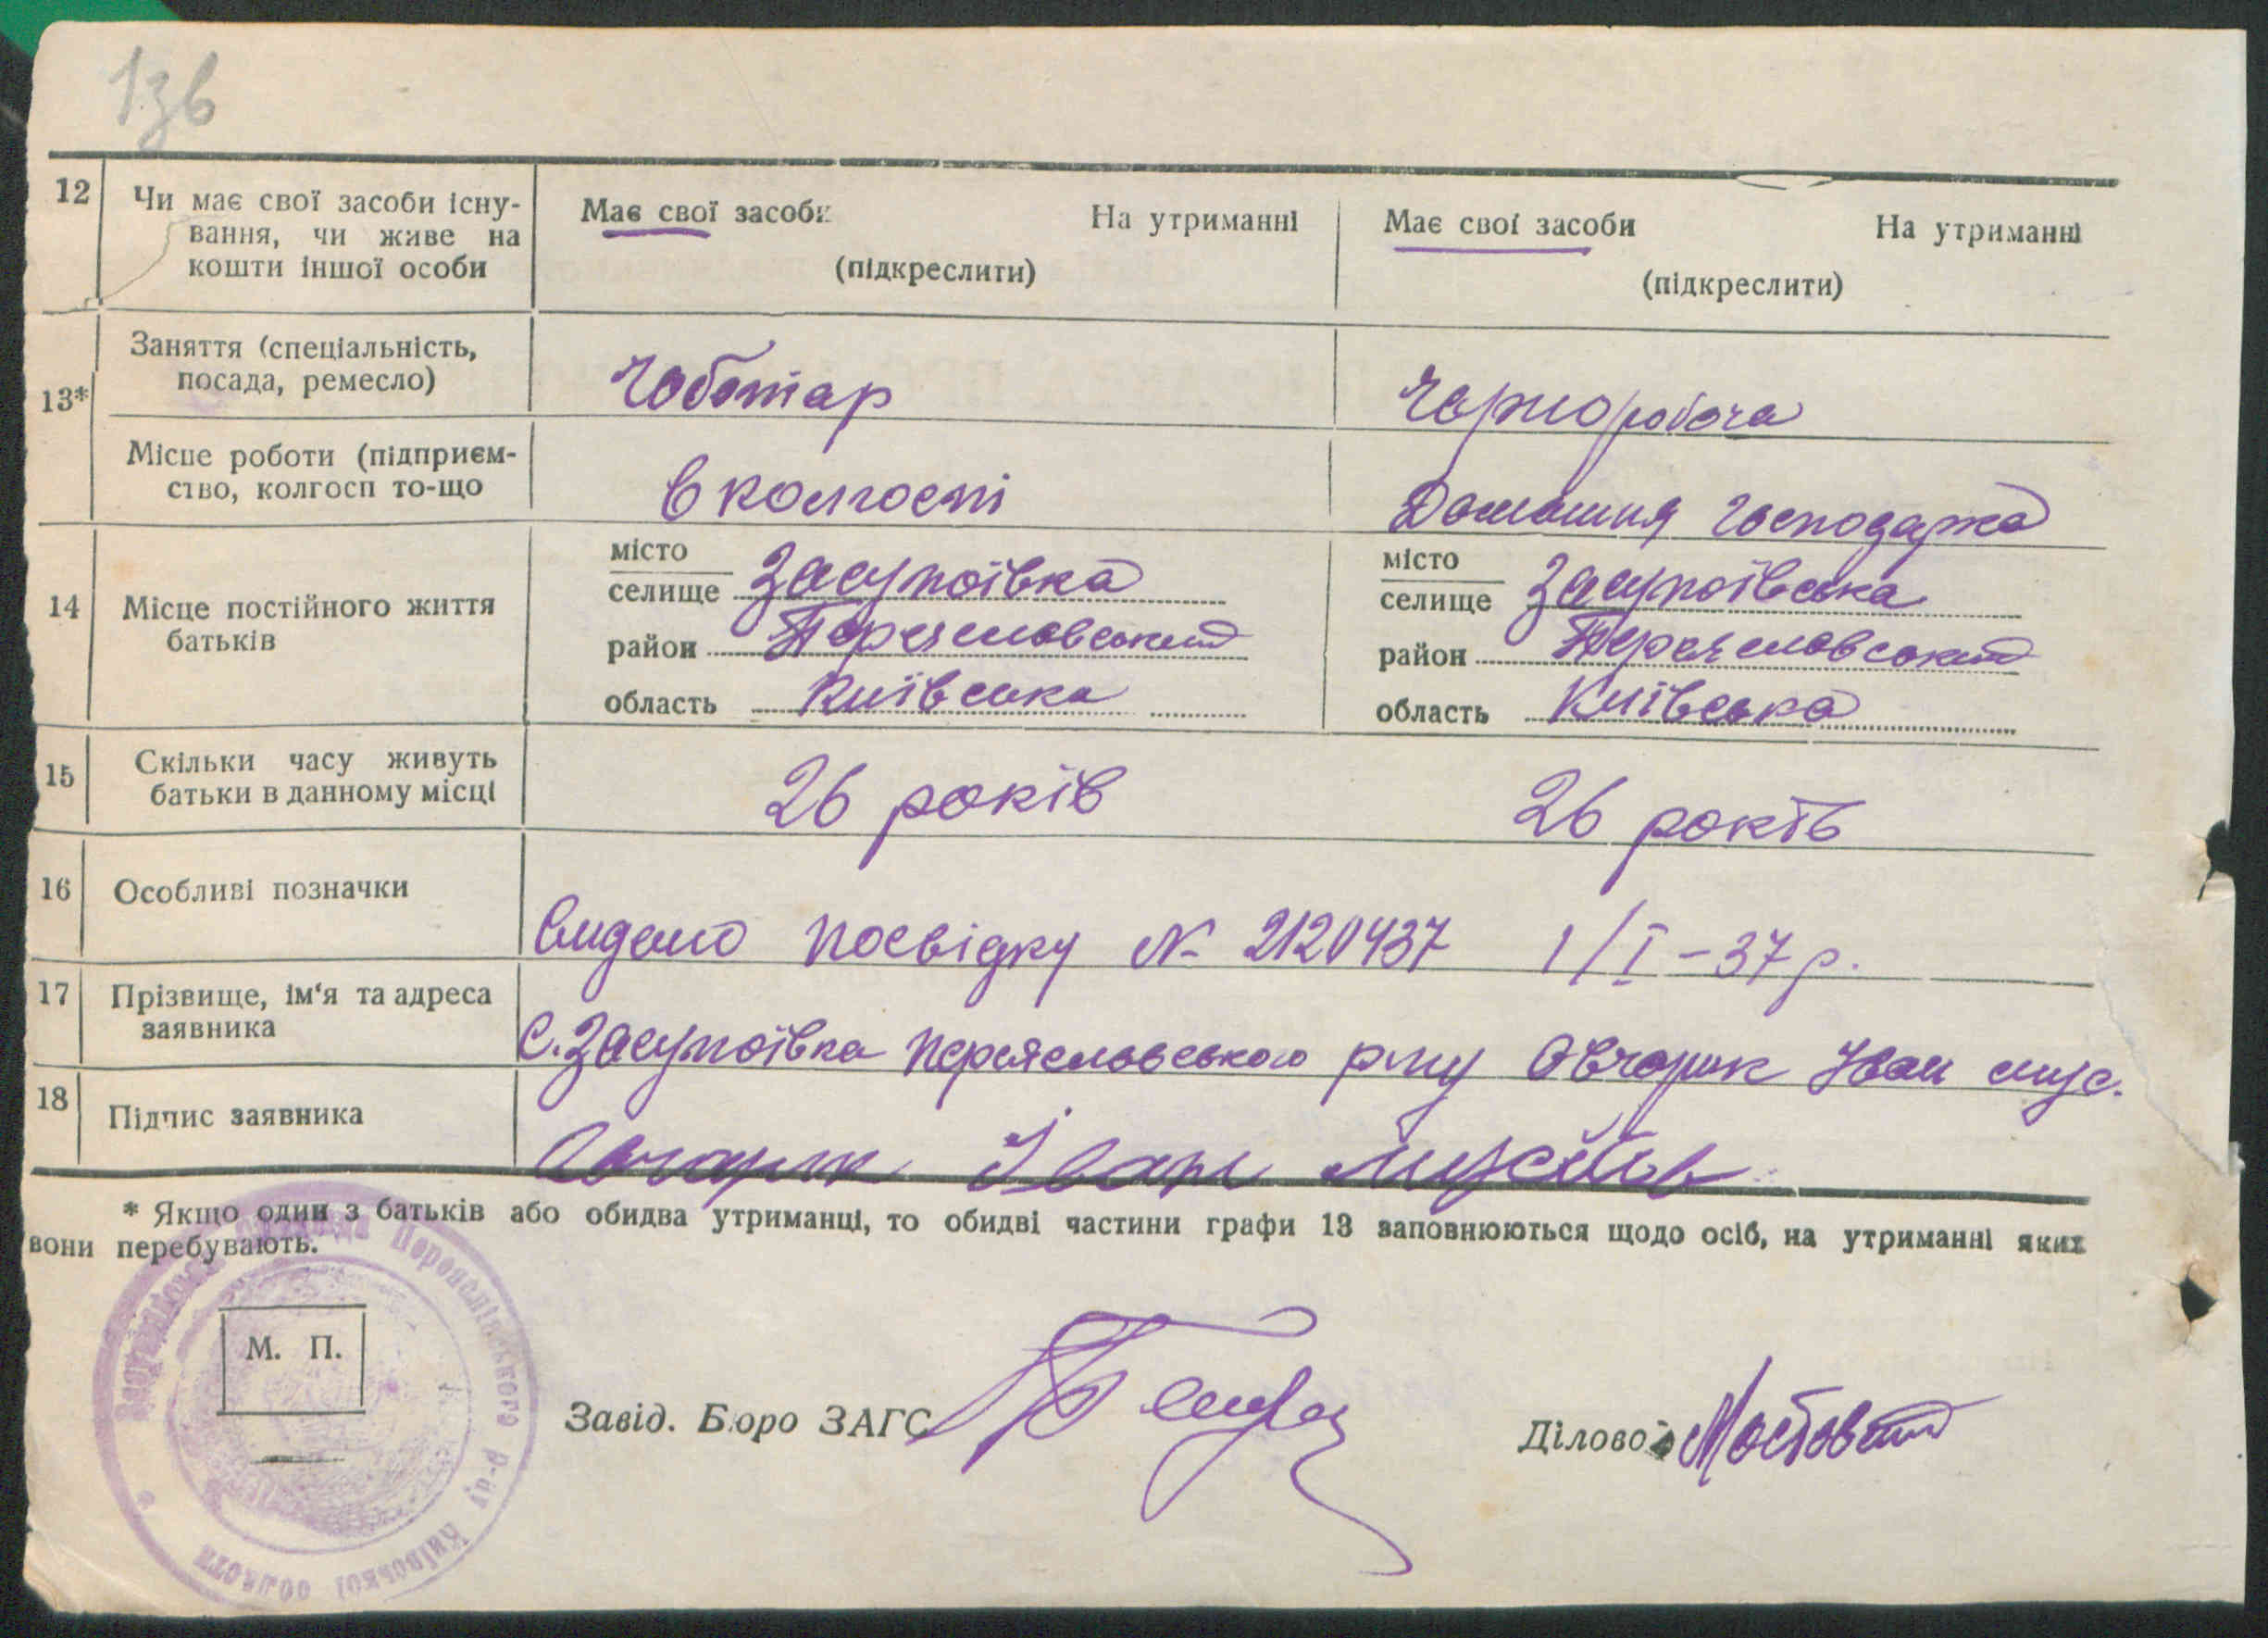 1зв
12 Чи має свої засоби існу- Має свої засоби На утриманні Має свої засоби На утриманні
вання, чи живе на
кошти іншої особи (підкреслити) (підкреслити)
Заняття (спеціальність,
посада, ремесло) Чоботар Чорноробоча
13*
Місце роботи (підприєм-
ство, колгосп то-що в колгоспі Домашня господарка
14 Місце постійного життя
батьків
місто
селище Засупоївка
район Переяславський
область Київська
місто
селище Засупоївська
район Переяславський
область Київська
15 Скільки часу живуть
батьки в данному місці 26 років 26 років
16 Особливі позначки Видано посвідку № 2120437 1/I-37 р.
17 Прізвище, ім'я та адреса
заявника с. Засупоївка Переяславського р-ну Овчарик Іван мус.
18 Підпис заявника Овчарик Іван мусієв
* Якщо один з батьків або обидва утриманці, то обидві частини графи 13 заповнюються щодо осіб, на утриманні яких
вони перебувають.
М. П.
Завід. Бюро ЗАГС Діловод Мостовий
рада Переяслівського р-ну Київської области